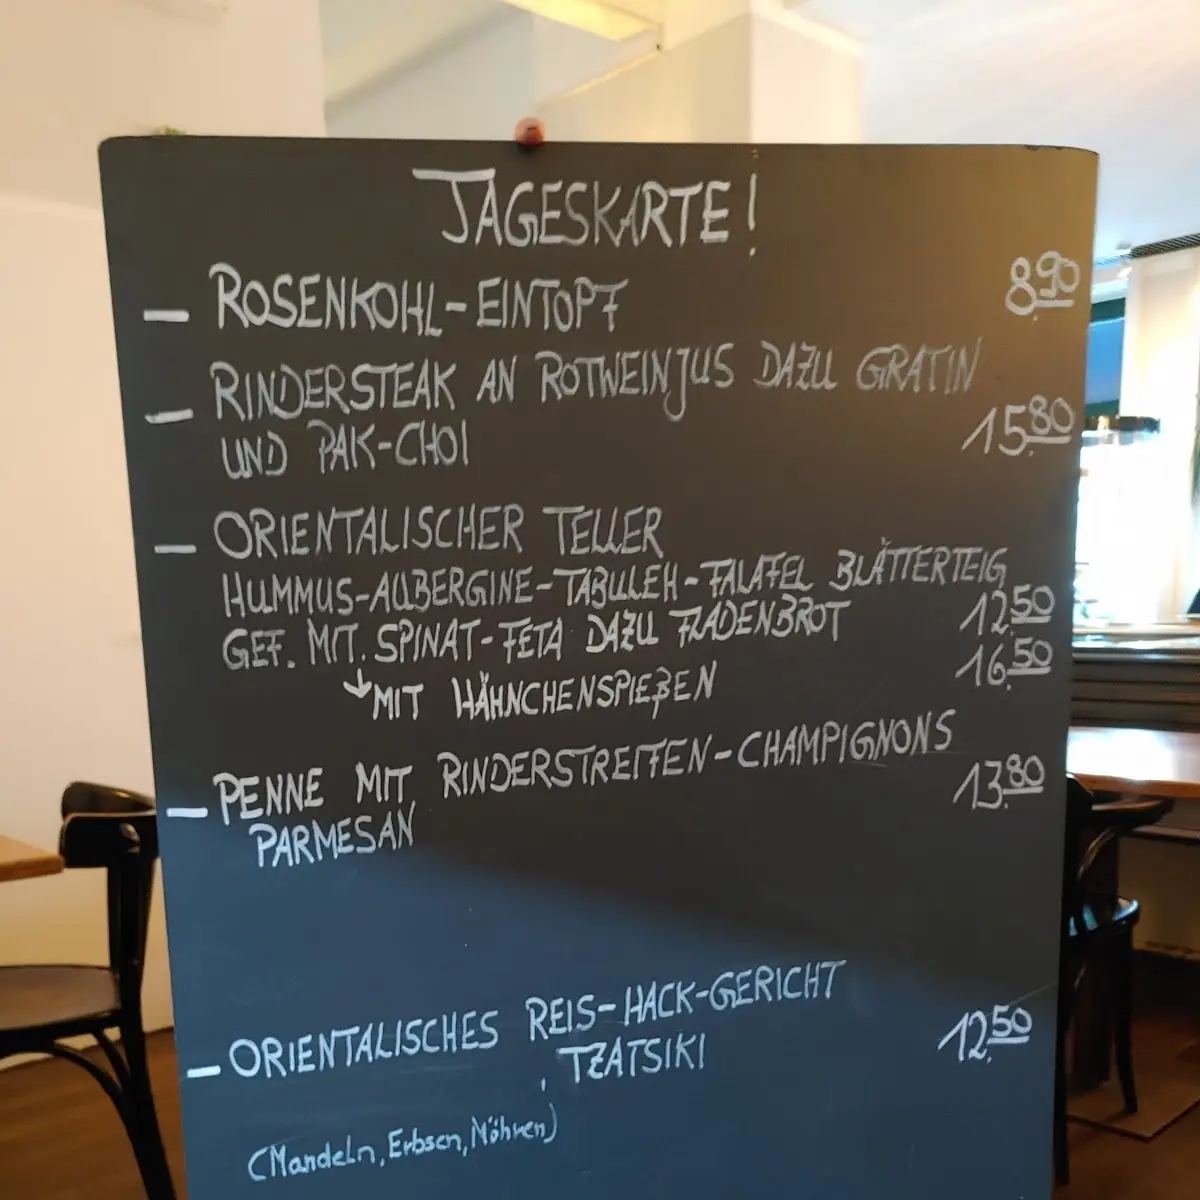 TAGESKARTE!
– ROSENKOHL-EINTOPF 8.90
– RINDERSTEAK AN ROTWEINJUS DAZU GRATIN
UND PAK-CHOI 15.80
– ORIENTALISCHER TELLER
HUMMUS-AUBERGINE-TABULEH-FALAFEL BLÄTTERTEIG
GEF. MIT. SPINAT-FETA DAZU FLADENBROT 12.50
↳ MIT HÄHNCHENSPIEßEN 16.50
– PENNE MIT RINDERSTREIFEN-CHAMPIGNONS
PARMESAN 13.80
– ORIENTALISCHES REIS-HACK-GERICHT
, TZATSIKI 12.50
(Mandeln, Erbsen, Möhren)